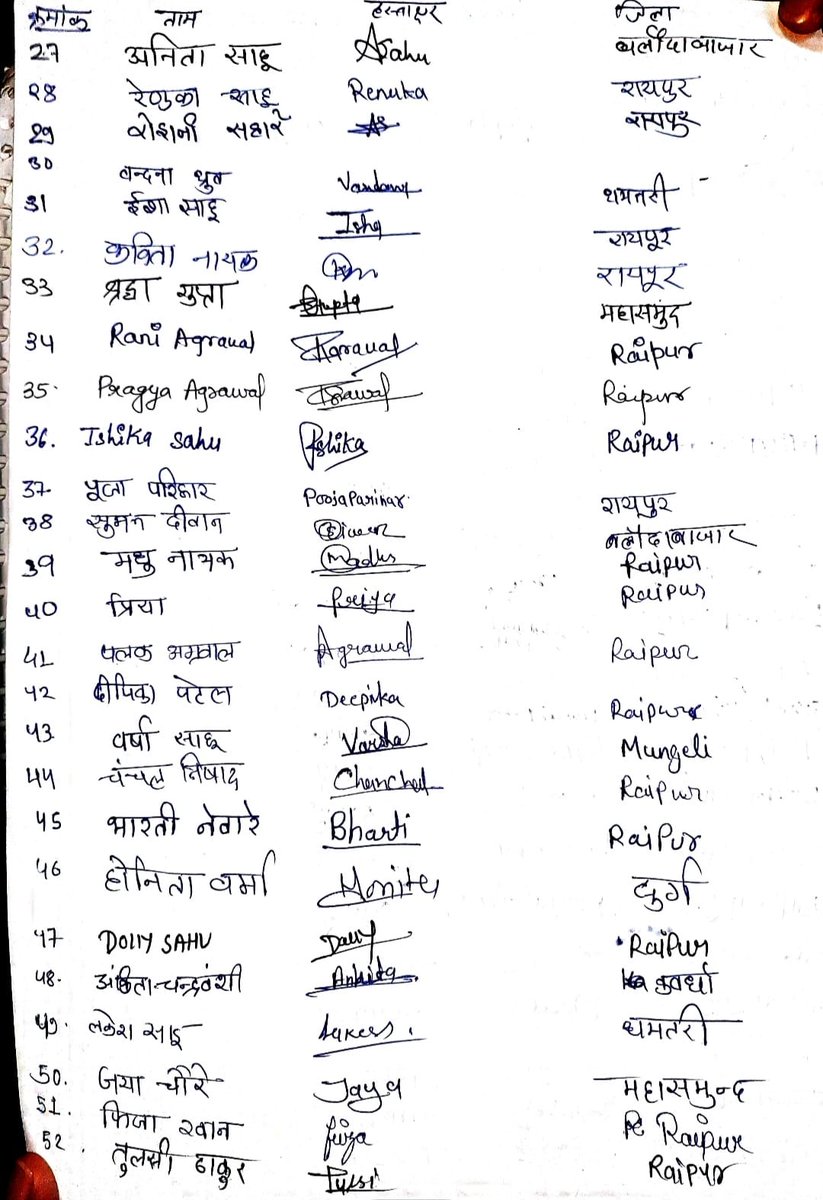 क्रमांक नाम हस्ताक्षर जिला
27 अनिता साहू Asahu बलौदाबाजार
28 रेणुका साहू Renuka रायपुर
29 रोशनी सहारे रायपुर
30 वन्दना ध्रुव Vandana धमतरी
31 ईशा साहू Isha रायपूर
32. कविता नायक रायपूर
33 श्रद्धा गुप्ता Gupta महासमुंद
34 Rani Agrawal Raipur
35. Pragya Agrawal Raipur
36. Ishika Sahu Ishika Raipur
37 पूजा परिहार Pooja Parihar. रायपुर
38 सुमन दीवान बलौदाबाजार
39 मधु नायक Madhu Raipur
40 प्रिया Priya Raipur
41 पलक अग्रवाल Agrawal Raipur
42 दीपिका पटेल Deepika Raipur
43 वर्षा साहू Varsha Mungeli
44 चंन्चल निषाद Chanchal Raipur
45 भारती नेवारे Bharti RaiPur
46 होनिता वर्मा Honita दुर्ग
47 DOllY SAHU Dolly RaiPur
48. अंकिता चन्द्रवंशी Ankita कवर्धा
49. लकेश साहू Lakesh. धमतरी
50. जया चौरे Jaya महासमुन्द
51. फिजा खान fiza Raipur
52. तुलसी ठाकुर Tulsi Raipur